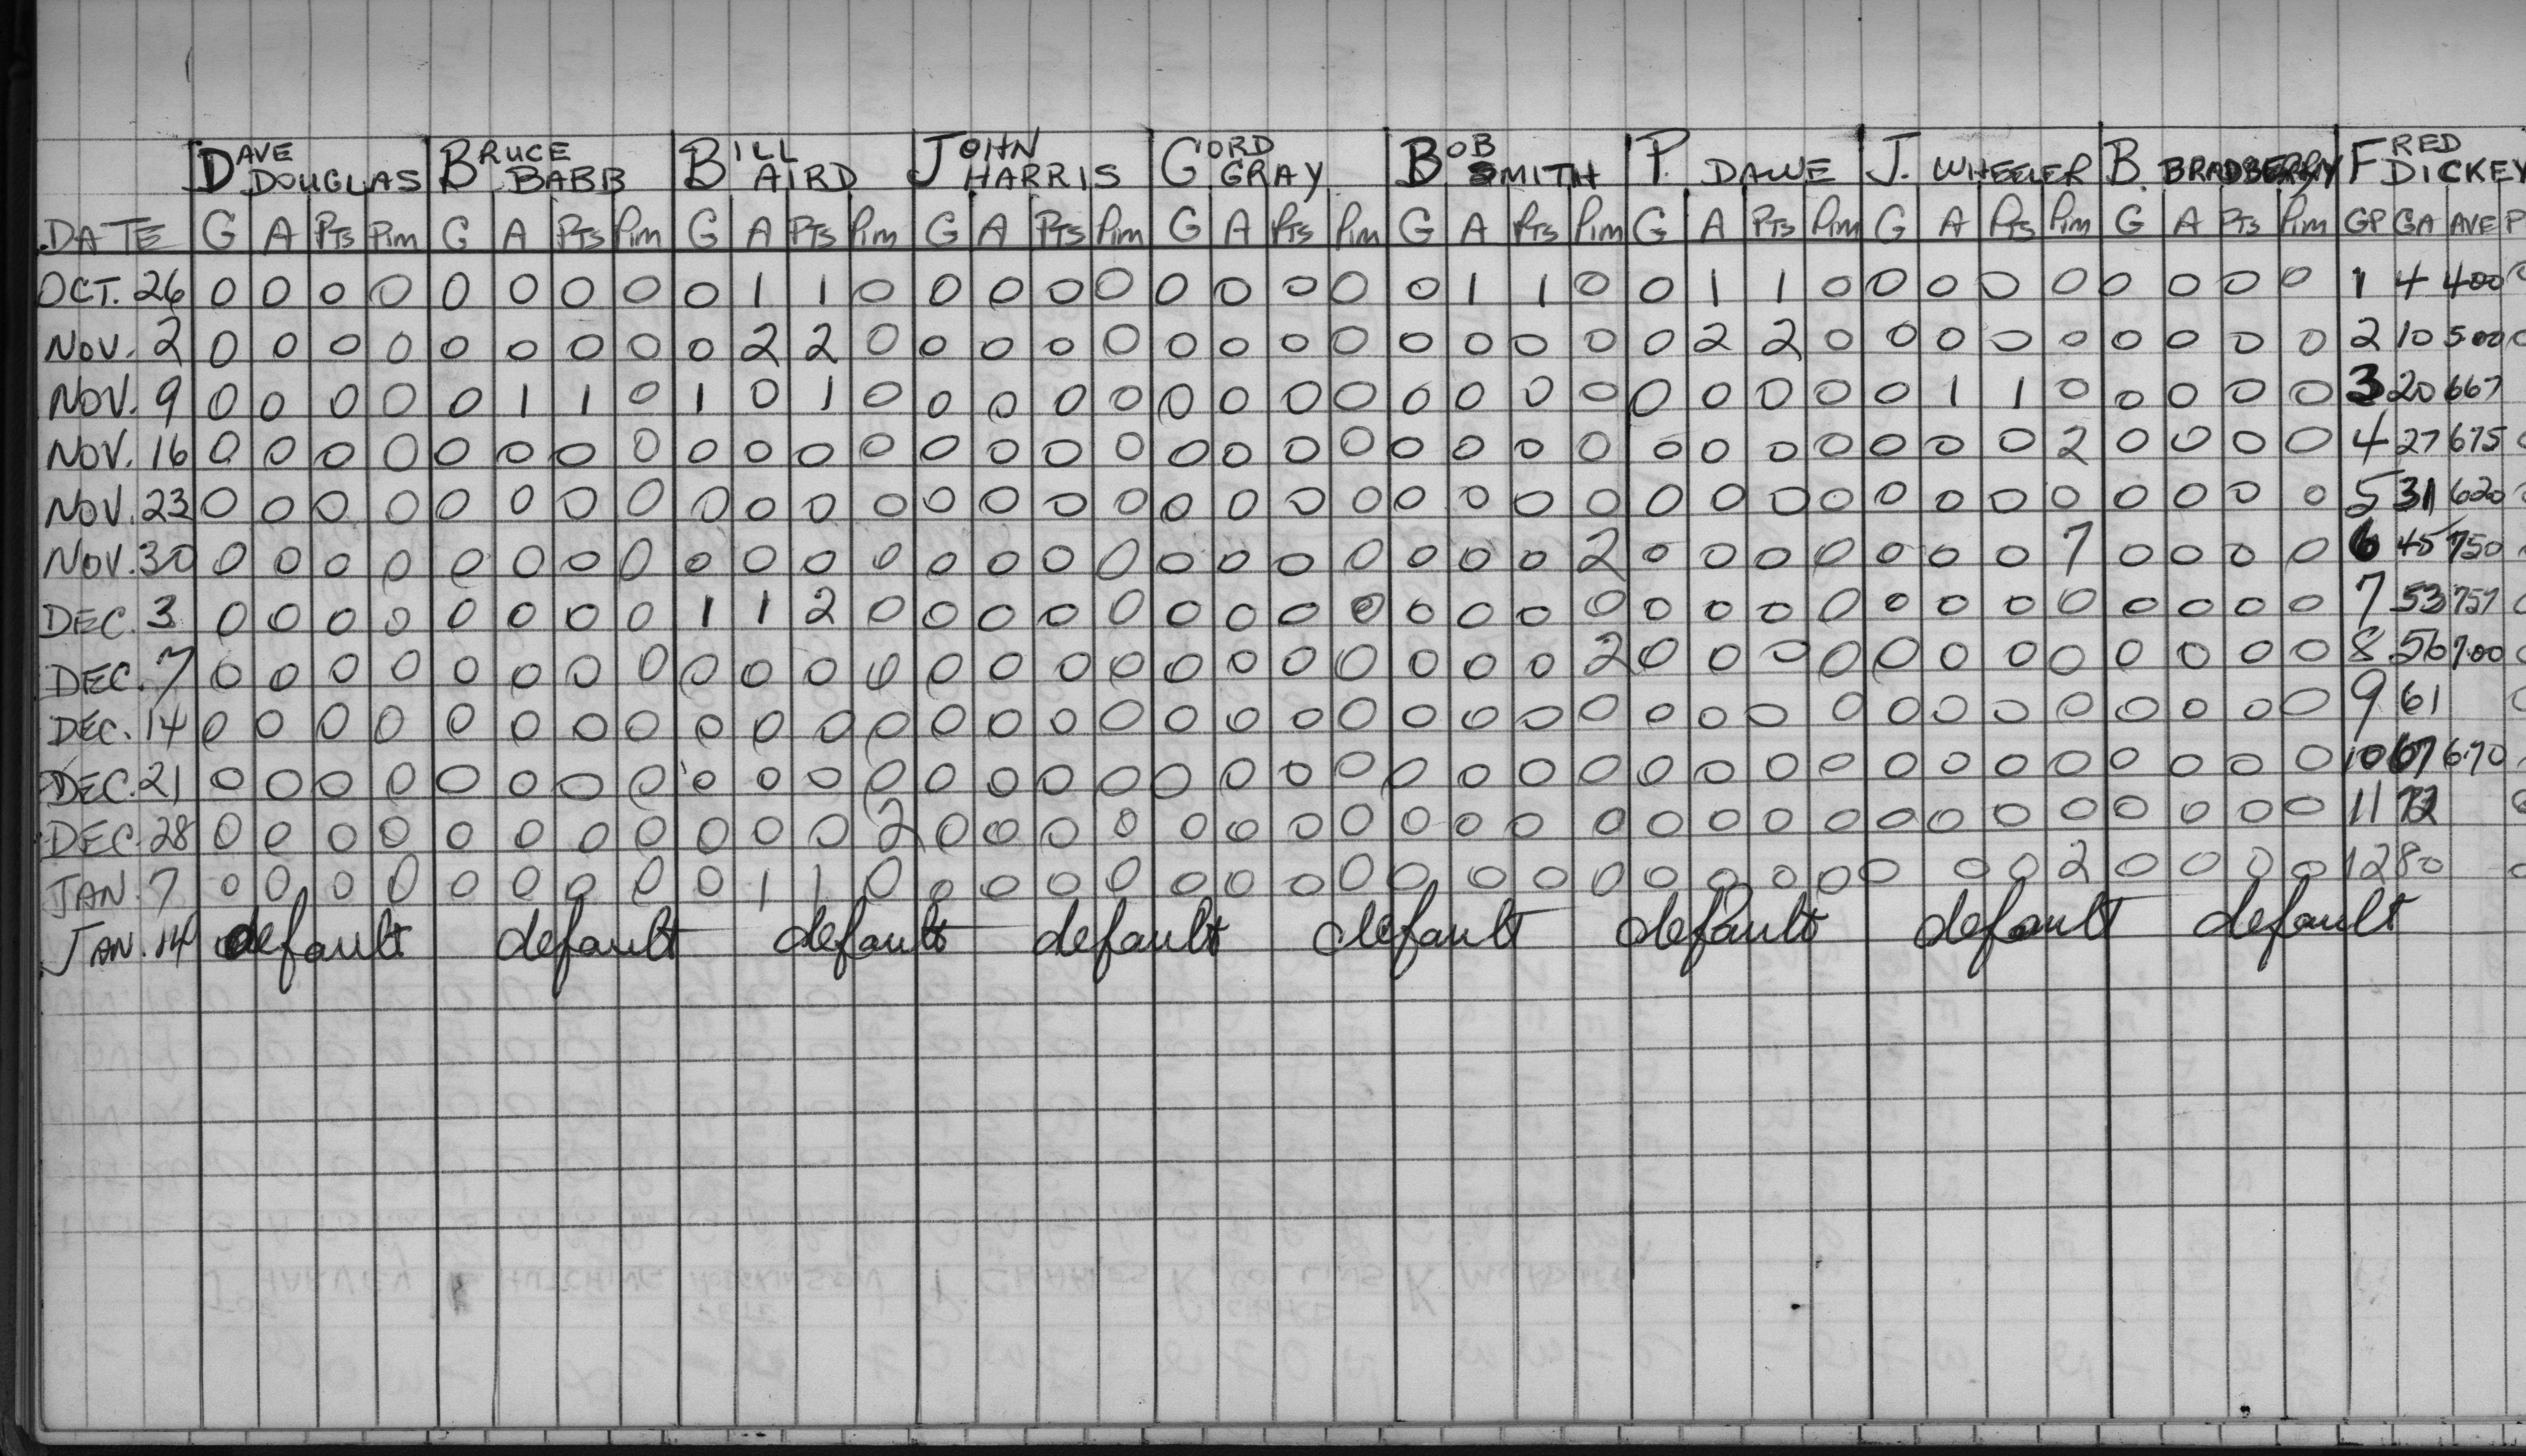 DAVE DOUGLAS BRUCE BABB BILL AIRD JOHN HARRIS GORD GRAY BOB SMITH P. DAWE J. WHEELER B. BRADBERRY FRED DICKEY
DATE G A PTS Pim G A PTS Pim G A PTS Pim G A PTS Pim G A PTS Pim G A PTS Pim G A PTS Pim G A PTS Pim G A PTS Pim GP GA AVE P
OCT. 26 0 0 0 0 0 0 0 0 0 1 1 0 0 0 0 0 0 0 0 0 0 1 1 0 0 1 1 0 0 0 0 0 0 0 0 0 1 4 400
NOV. 2 0 0 0 0 0 0 0 0 0 2 2 0 0 0 0 0 0 0 0 0 0 0 0 0 0 2 2 0 0 0 0 0 0 0 0 0 2 10 500
NOV. 9 0 0 0 0 0 1 1 0 1 0 1 0 0 0 0 0 0 0 0 0 0 0 0 0 0 0 0 0 0 1 1 0 0 0 0 0 3 20 667
NOV. 16 0 0 0 0 0 0 0 0 0 0 0 0 0 0 0 0 0 0 0 0 0 0 0 0 0 0 0 0 0 0 0 2 0 0 0 0 4 27 675
NOV. 23 0 0 0 0 0 0 0 0 0 0 0 0 0 0 0 0 0 0 0 0 0 0 0 0 0 0 0 0 0 0 0 0 0 0 0 0 5 31 620
NOV. 30 0 0 0 0 0 0 0 0 0 0 0 0 0 0 0 0 0 0 0 0 0 0 0 2 0 0 0 0 0 0 0 7 0 0 0 0 6 45 750
DEC. 3 0 0 0 0 0 0 0 0 1 1 2 0 0 0 0 0 0 0 0 0 0 0 0 0 0 0 0 0 0 0 0 0 0 0 0 0 7 53 757
DEC. 7 0 0 0 0 0 0 0 0 0 0 0 0 0 0 0 0 0 0 0 0 0 0 0 2 0 0 0 0 0 0 0 0 0 0 0 0 8 56 700
DEC. 14 0 0 0 0 0 0 0 0 0 0 0 0 0 0 0 0 0 0 0 0 0 0 0 0 0 0 0 0 0 0 0 0 0 0 0 0 9 61
DEC. 21 0 0 0 0 0 0 0 0 0 0 0 0 0 0 0 0 0 0 0 0 0 0 0 0 0 0 0 0 0 0 0 0 0 0 0 0 10 67 6.70
DEC. 28 0 0 0 0 0 0 0 0 0 0 0 2 0 0 0 0 0 0 0 0 0 0 0 0 0 0 0 0 0 0 0 0 0 0 0 0 11 72
JAN. 7 0 0 0 0 0 0 0 0 0 1 1 0 0 0 0 0 0 0 0 0 0 0 0 0 0 0 0 0 0 0 0 2 0 0 0 0 12 80
JAN. 14 default default default default default default default default